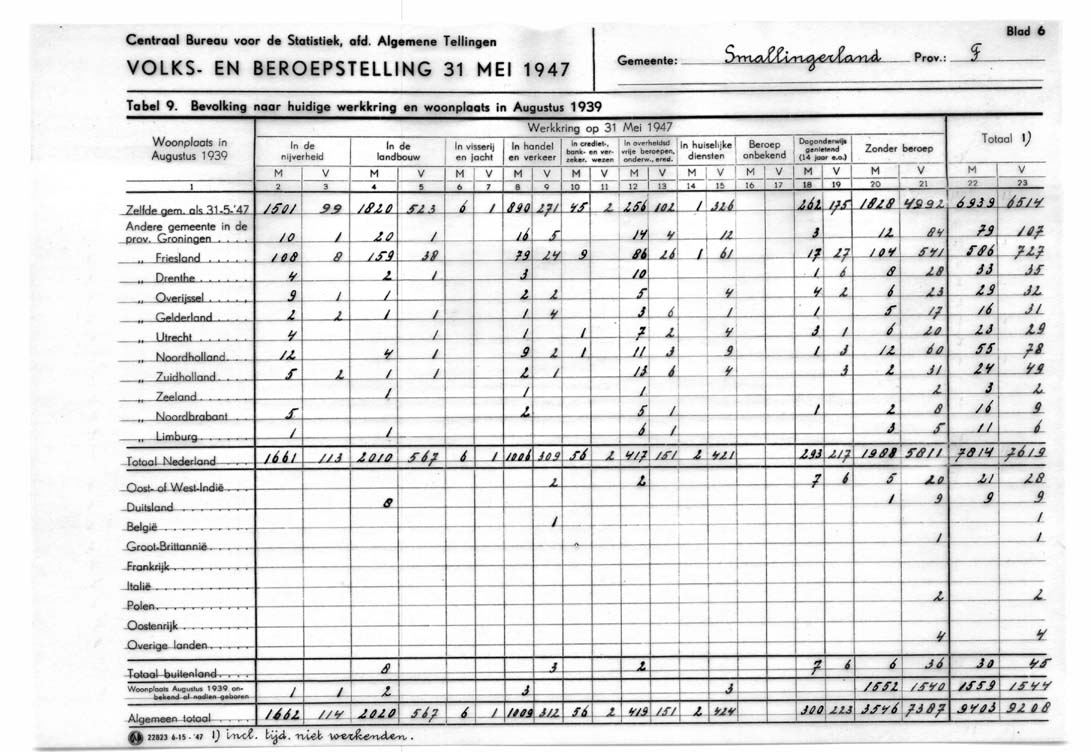 Blad 6
Centraal Bureau voor de Statistiek, afd. Algemene Tellingen
VOLKS- EN BEROEPSTELLING 31 MEI 1947
Gemeente: Smallingerland Prov.: F
Tabel 9. Bevolking naar huidige werkkring en woonplaats in Augustus 1939
Woonplaats in Augustus 1939
Werkkring op 31 Mei 1947
Totaal 1)
In de nijverheid
In de landbouw
In visserij en jacht
In handel en verkeer
In crediet-, bank- en verzeker. wezen
In overheidsd vrije beroepen, onderw., ered.
In huiselijke diensten
Beroep onbekend
Dagonderwijs genietend (14 jaar e.o.)
Zonder beroep
M V M V M V M V M V M V M V M V M V M V M V
1 2 3 4 5 6 7 8 9 10 11 12 13 14 15 16 17 18 19 20 21 22 23
Zelfde gem. als 31-5-'47 1501 99 1820 523 6 1 890 271 45 2 256 102 1 326 262 175 1828 4992 6939 6514
Andere gemeente in de
prov. Groningen .... 10 1 20 1 16 5 14 4 12 3 12 84 79 107
„ Friesland ...... 108 8 159 38 79 24 9 86 26 1 61 17 27 104 541 586 727
„ Drenthe ....... 4 2 1 3 10 1 6 8 28 33 35
„ Overijssel ...... 9 1 1 2 2 5 4 4 2 6 23 29 32
„ Gelderland ..... 2 2 1 1 1 4 3 6 1 1 5 17 16 31
„ Utrecht ........ 4 1 1 1 7 2 4 3 1 6 20 23 29
„ Noordholland.... 12 4 1 9 2 1 11 3 9 1 3 12 60 55 78
„ Zuidholland..... 5 2 1 1 2 1 13 6 4 3 2 31 24 49
„ Zeeland ....... 1 1 1 2 3 2
„ Noordbrabant ... 5 2 5 1 1 2 8 16 9
„ Limburg........ 1 1 6 1 3 5 11 6
Totaal Nederland ...... 1661 113 2010 567 6 1 1006 309 56 2 417 151 2 421 293 217 1988 5811 7814 7619
Oost- of West-Indië .... 2 2 7 6 5 20 21 28
Duitsland ............ 8 1 9 9 9
België .............. 1 1
Groot-Brittannië....... 1 1
Frankrijk ............
Italië ...............
Polen............... 2 2
Oostenrijk ...........
Overige landen........ 4 4
Totaal buitenland ...... 8 3 2 7 6 6 36 30 45
Woonplaats Augustus 1939 onbekend of nadien geboren 1 1 2 3 3 1552 1540 1559 1544
Algemeen totaal ....... 1662 114 2020 567 6 1 1009 312 56 2 419 151 2 424 300 223 3546 7387 9403 9208
22823 6-15 - '47 1) incl. tijd. niet werkenden.